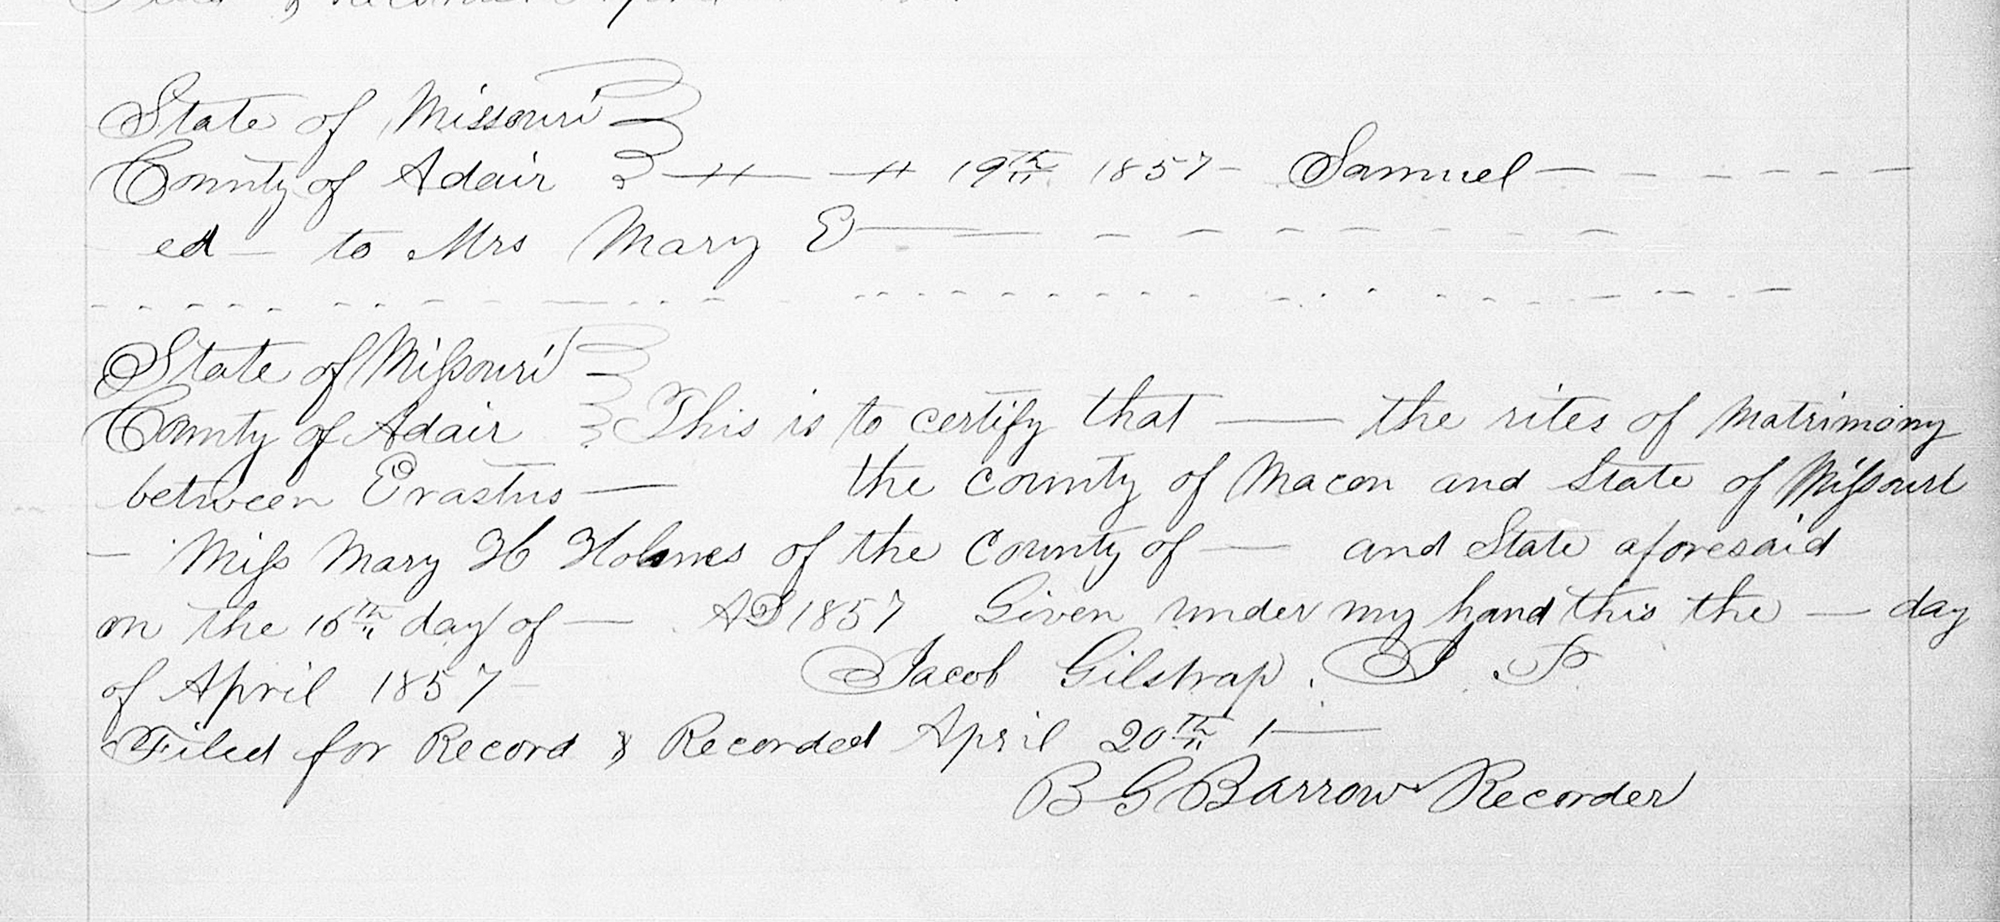 Filed & Recorded April
State of Missouri
County of Adair — " — — " 19th 1857 - Samuel — - - - - - -
ed — to Mrs Mary E — — - - - - - - - -
State of Missouri
County of Adair This is to certify that — the rites of Matrimony
between Erastus — the county of Macon and State of Missouri
— Miss Mary H Holmes of the County of — and State aforesaid
on the 16th day of — AD 1857 Given under my hand this the — day
of April 1857 - Jacob Gilstrap. J. P.
Filed for Record & Recorded April 20th 1—
B G Barrow Recorder